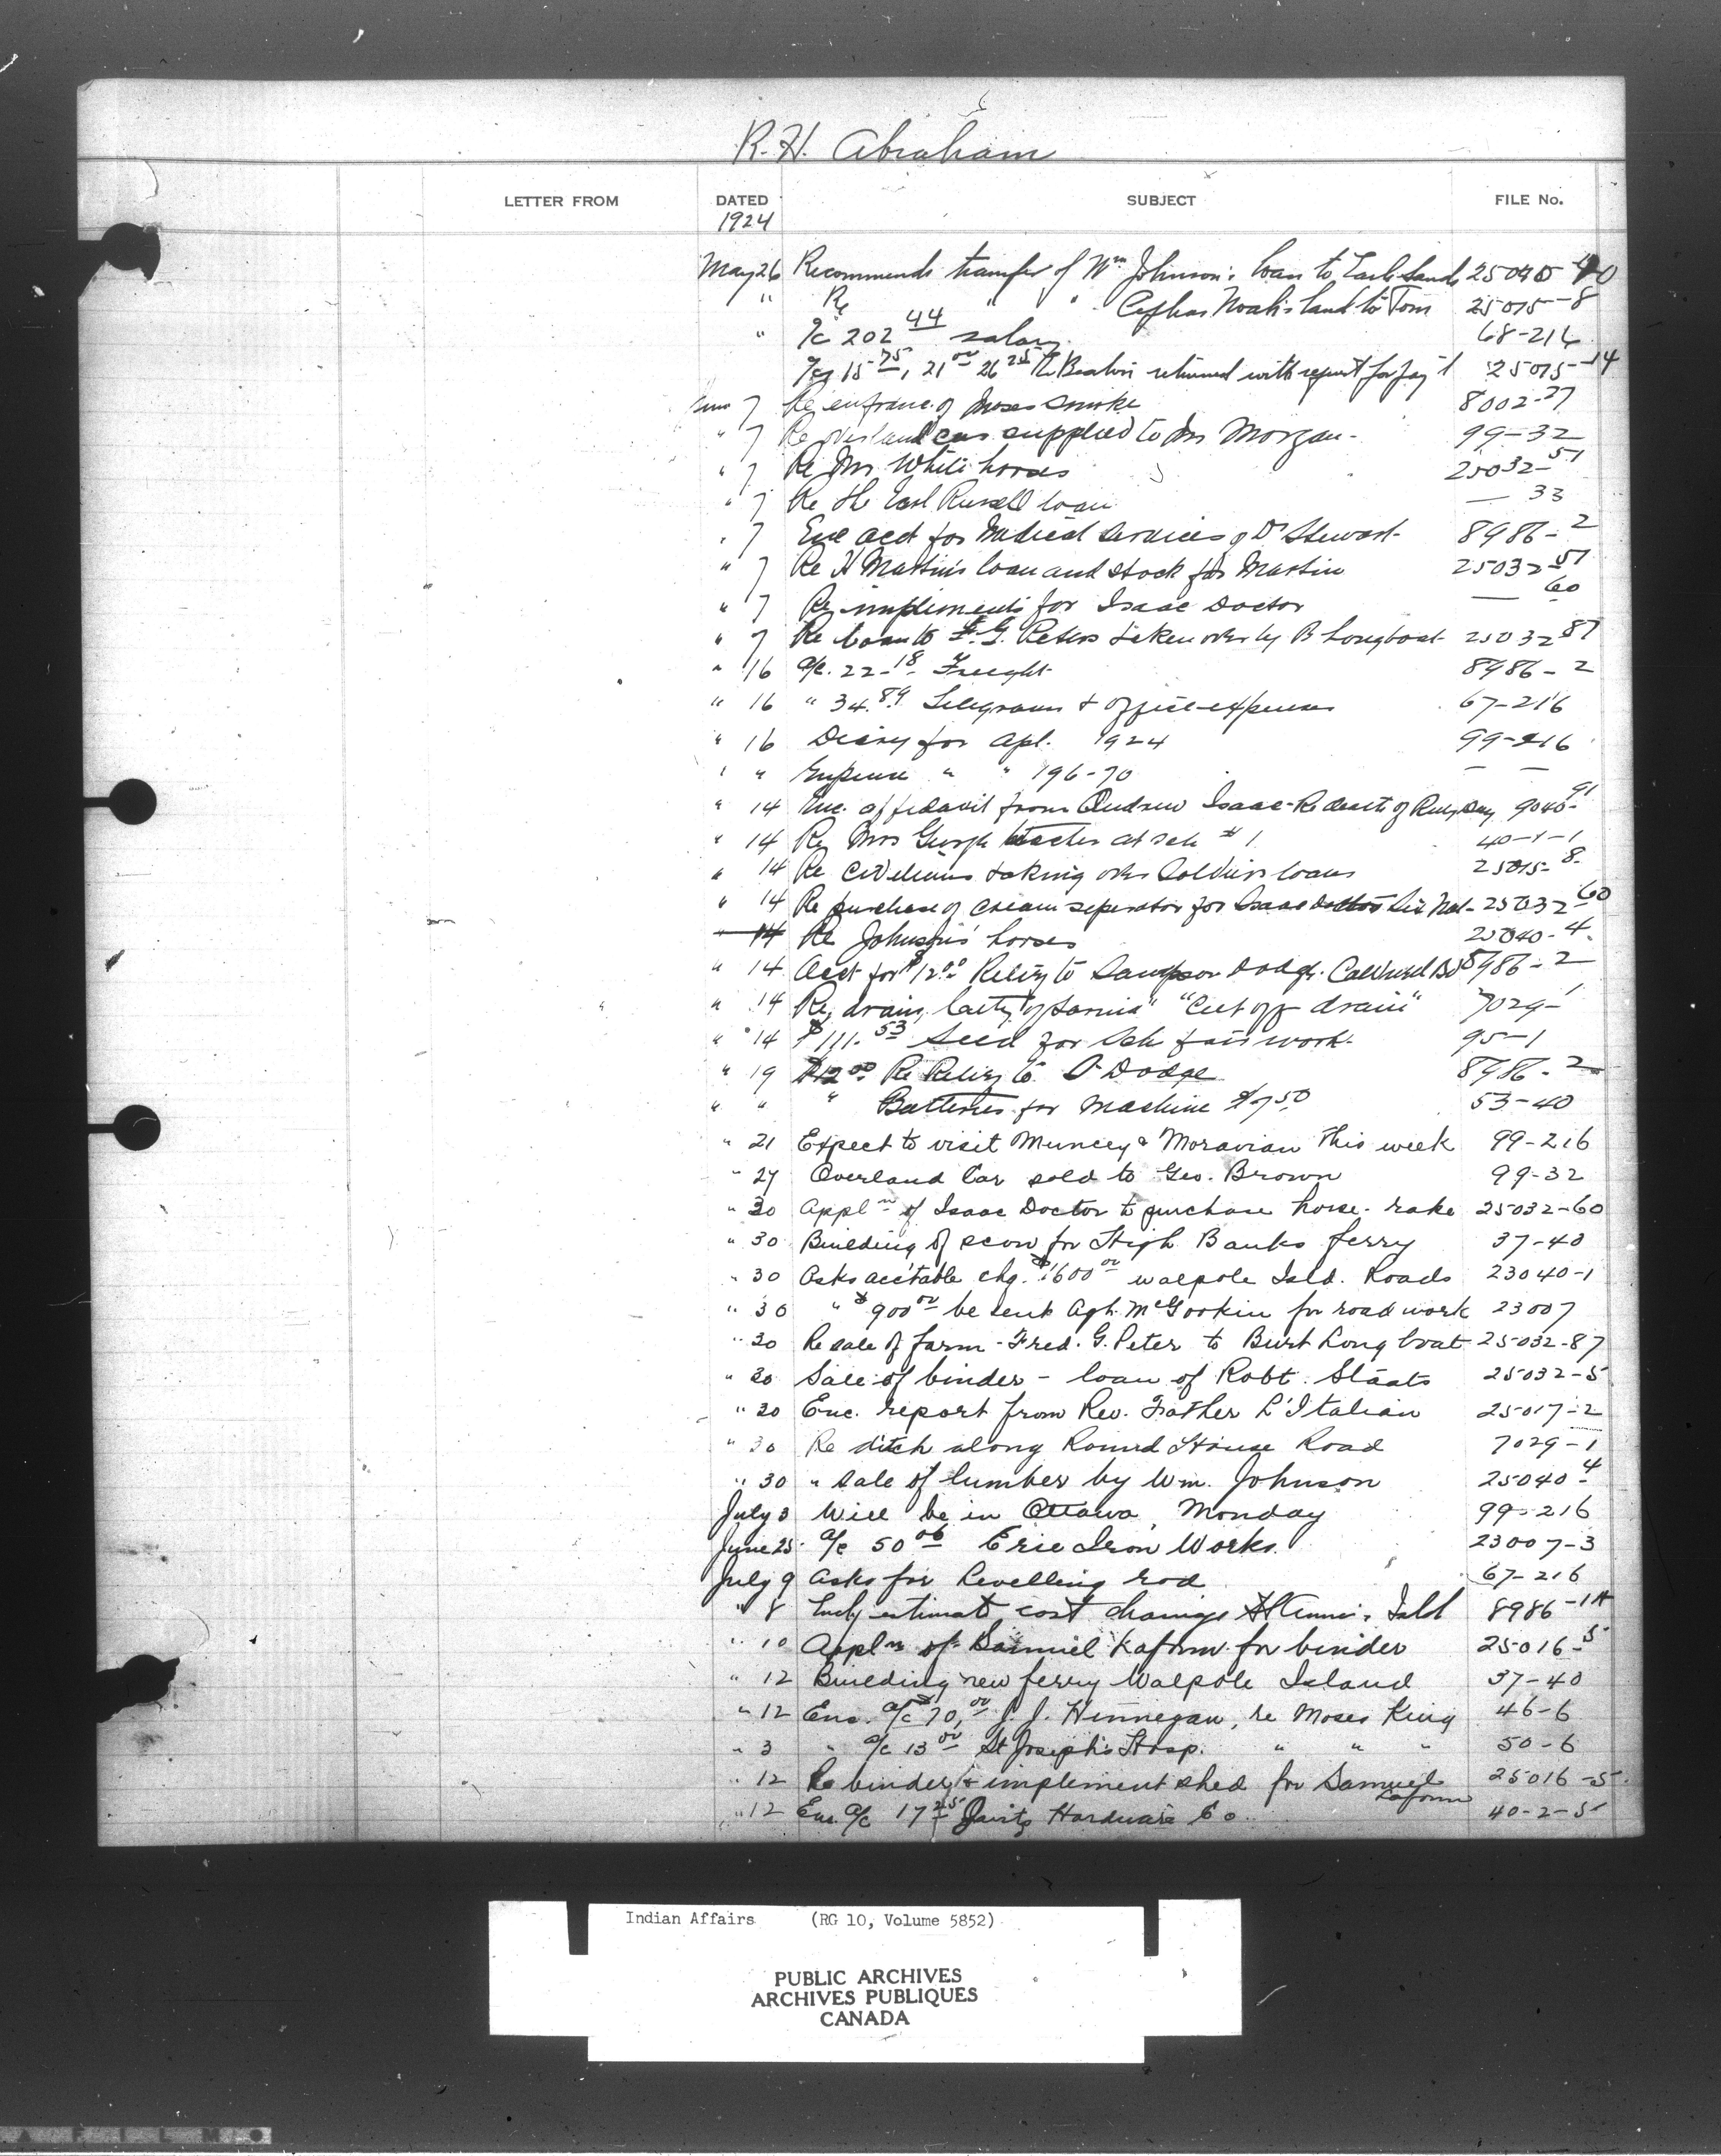 R. H. Abraham
LETTER FROM DATED SUBJECT FILE No.
1924
May 26 Recommends transfer of Wm Johnson's loan to 250
" Re " " Cephas Noah's land to Tom 25015-8
" a/c 202 44 salary 68-216
15 75, 21 00 26 25 returned with 25015-14
7 Re enfranc. of Moses Smoke 8002-27
" 7 Re Overland car supplied to Morgan - 99-32
" 7 Re Mrs White horses 25032-51
" 7 Re Earl Russell loan — 33
" 7 Enc acct for Medical Services of Dr Stewart - 8986-2
" 7 Re Martin's loan and stock for Martin 25032-51
" 7 Re impliments for Isaac Doctor — 60
" 7 Re loan to F. G. Peters taken over by B Longboat 25032 87
" 16 a/c. 22-18 Freight 8986-2
" 16 " 34.89 Telegrams & office expenses 67-216
" 16 Diary for Apl. 1924 99-216
" " Expense " " 196-70 — —
" 14 Enc. affidavit from Andrew Isaac Re death of 9040-91
" 14 Re Mrs teacher at sch # 1 40-1-1
" 14 Re Civilians taking over Soldiers loans 25015-8
" 14 Re purchase of cream seperator for Isaac Doctor Six Nat- 25032-60
14 Re Johnson's horses 25040-4
" 14 Acct for $12 00 Relief to Sampson Dodge. Caldwell Bd 8986-2
" 14 Re, drain, City of Sarnia" "Cut off drain" 7029-1
" 14 $111.53 Seed for Sch fair work. 95-1
" 19 $12 00 Re Relief to S Dodge 8986-2
" " " Batteries for Machine $7 50 53-40
" 21 Expect to visit Muncey & Moravian this week 99-216
" 27 Overland Car sold to Geo. Brown 99-32
" 30 Appln of Isaac Doctor to purchase horse-rake 25032-60
" 30 Building of scow for High Banks ferry 37-40
" 30 Asks acctable chq. $1600 00 Walpole Isld. Roads 23040-1
" 30 " $900 00 be sent Agt. McGookin for road work 23007
" 30 Re sale of farm - Fred. G. Peter to Burt Longboat 25032-87
" 30 Sale of binder - loan of Robt. Staats 25032-5
" 30 Enc. report from Rev. Father L'Italian 25017-2
" 30 Re ditch along Round House Road 7029-1
" 30 " sale of lumber by Wm. Johnson 25040-4
July 3 Will be in Ottawa, Monday 99-216
June 25 a/c 50 06 Erie Iron Works. 23007-3
July 9 Asks for Levelling rod 67-216
" 8 estimate cost drainage St Anne's Isld 8986-1A
" 10 Appln of Samuel Laform for binder 25016-5
" 12 Building new ferry Walpole Island 37-40
" 12 Enc. a/c $70,00 J. J. Hinnegan, re Moses King 46-6
" 3 " a/c 13 00 St Joseph's Hosp. " " " 50-6
" 12 Re binder & implement shed for Samuel Laform 25016-5
" 12 Enc. a/c 17 25 Hardware Co. 40-2-5
Indian Affairs (RG 10, Volume 5852)
PUBLIC ARCHIVES
ARCHIVES PUBLIQUES
CANADA